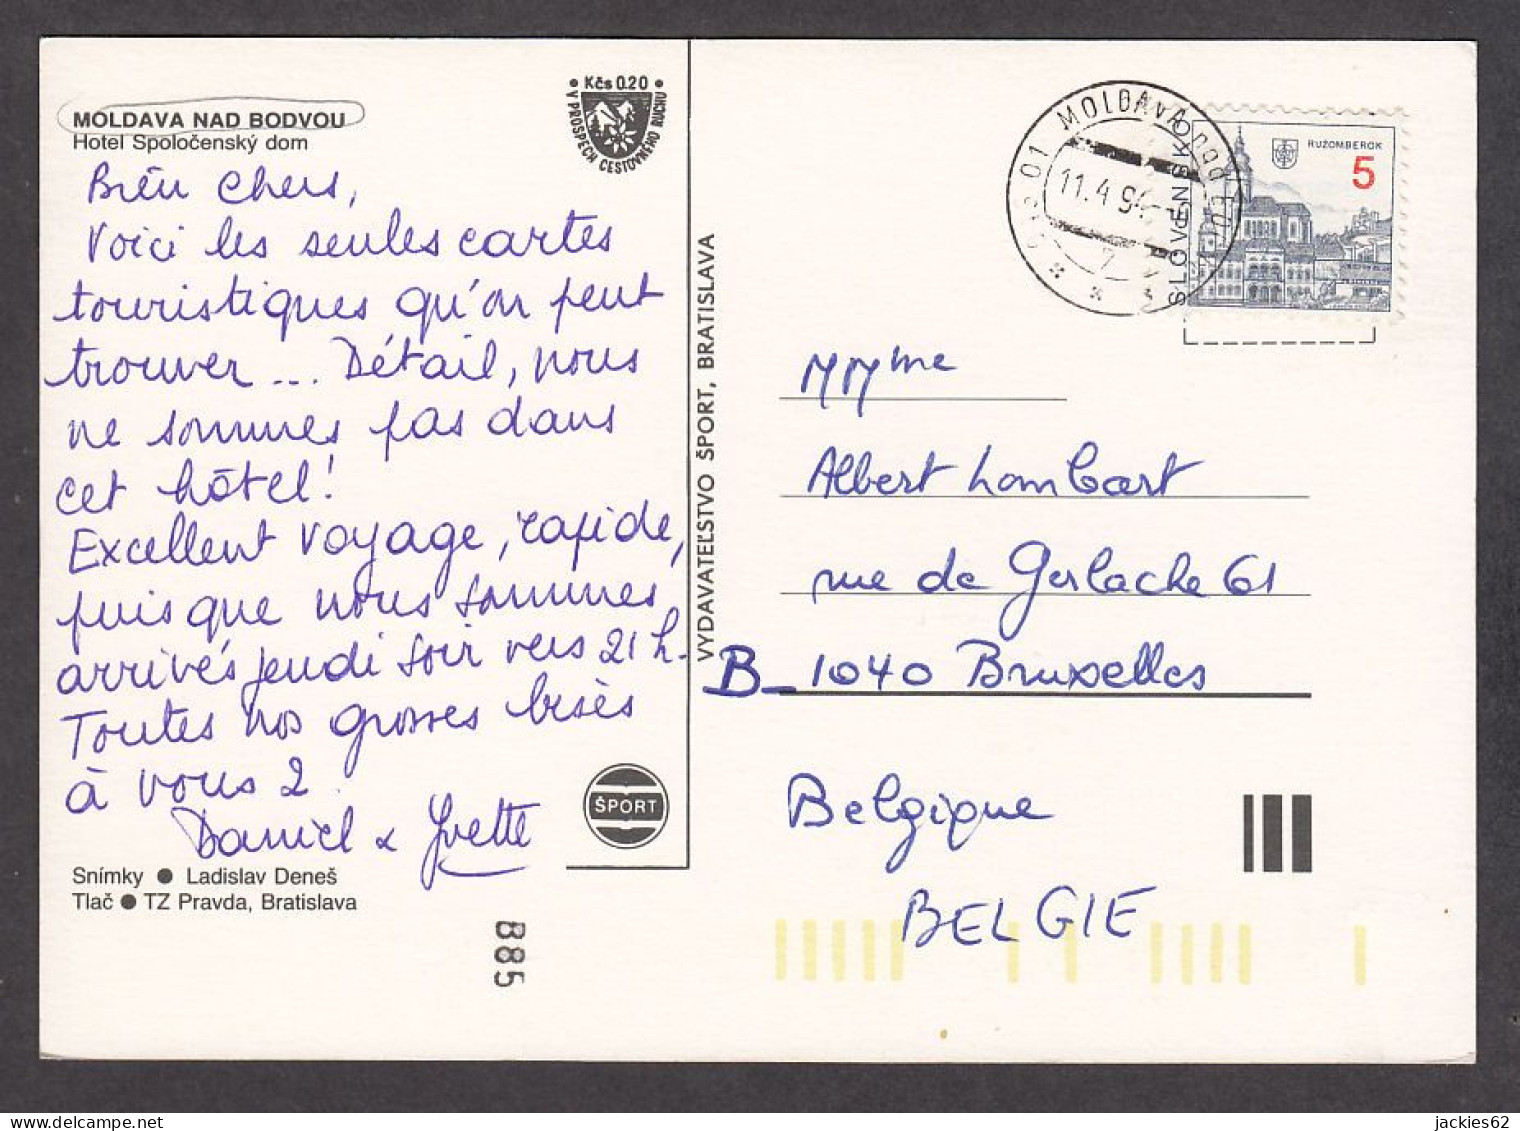 MOLDAVA NAD BODVOU
Hotel Spoločenský dom
Kčs 0.20
V PROSPECH CESTOVNÉHO RUCHU
Bien chers,
Voici les seules cartes
touristiques qu'on peut
trouver ... Détail, nous
ne sommes pas dans
cet hôtel!
Excellent voyage, rapide,
puisque nous sommes
arrivés jeudi soir vers 21 h.
Toutes nos grosses bises
à vous 2
Daniel & Yvette
Snímky ● Ladislav Deneš
Tlač ● TZ Pravda, Bratislava
ŠPORT
B85
VYDAVATEĽSTVO ŠPORT, BRATISLAVA
MOLDAVA nad Bodvou
11.4.94
SLOVENSKO
RUŽOMBEROK
5
MMme
Albert Lombart
rue de Gerlache 61
B_ 1040 Bruxelles
Belgique
BELGIE
jackies62